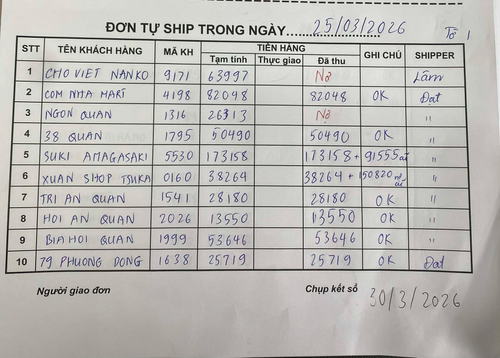 ĐƠN TỰ SHIP TRONG NGÀY 25/03/2026 Tờ 1
STT TÊN KHÁCH HÀNG MÃ KH TIỀN HÀNG GHI CHÚ SHIPPER
Tạm tính Thực giao Đã thu
1 CHO VIET NANKO 9171 63997 Nợ Lâm
2 COM NHA MART 4198 82048 82048 OK Đạt
3 NGON QUAN 1316 26313 Nợ "
4 38 QUAN 1795 50490 50490 OK "
5 SUKI AMAGASAKI 5530 173158 173158 + 91555 "
6 XUAN SHOP TSUKA 0160 38264 38264 + 150820 "
7 TRI AN QUAN 1541 28180 28180 OK "
8 HOI AN QUAN 2026 13550 13550 OK "
9 BIA HOI QUAN 1999 53646 53646 OK "
10 79 PHUONG DONG 1638 25719 25719 OK Đạt
Người giao đơn Chụp kết sổ 30/3/2026